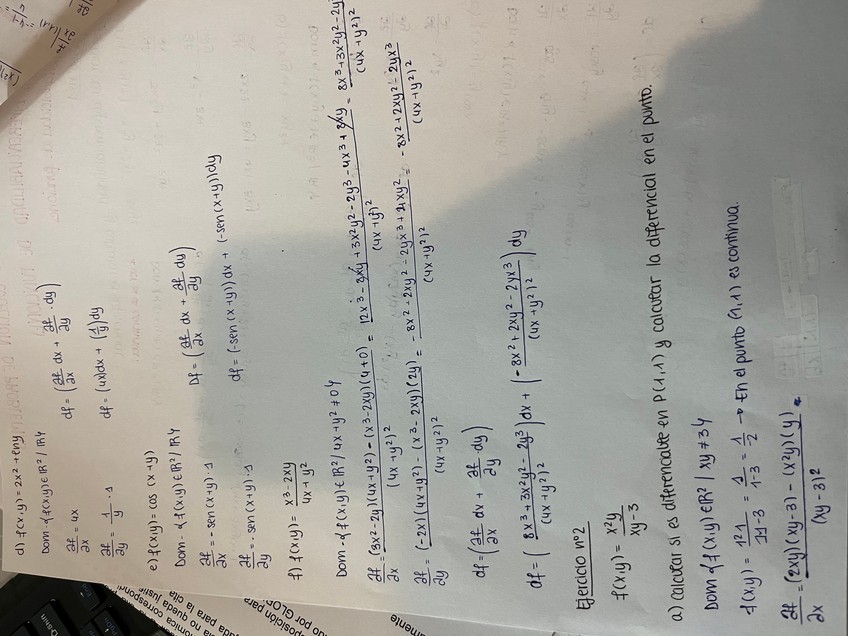 d) f(x,y) = 2x² + lny
Dom = {f(x,y) ∈ ℝ² / ℝ}
∂f/∂x = 4x
df = (∂f/∂x dx + ∂f/∂y · dy)
∂f/∂y = 1/y · 1
df = (4x)dx + (1/y)dy
e) f(x,y) = cos (x+y)
Dom = {f(x,y) ∈ ℝ² / ℝ}
∂f/∂x = - sen (x+y) · 1
Df = (∂f/∂x dx + ∂f/∂y dy)
∂f/∂y = - sen (x+y) · 1
df = (-sen (x+y)) dx + (-sen (x+y)) dy
f) f(x,y) = (x³ - 2xy)/(4x + y²)
Dom = {f(x,y) ∈ ℝ² / 4x + y² ≠ 0}
∂f/∂x = ((3x² - 2y)(4x + y²) - (x³ - 2xy)(4+0))/(4x + y²)² = (12x³ - 8xy + 3x²y² - 2y³ - 4x³ + 8xy)/(4x + y²)² = (8x³ + 3x²y² - 2y³)/(4x + y²)²
∂f/∂y = ((-2x)(4x + y²) - (x³ - 2xy)(2y))/(4x + y²)² = (-8x² - 2xy² - 2yx³ + 4xy²)/(4x + y²)² = (-8x² + 2xy² - 2yx³)/(4x + y²)²
df = (∂f/∂x dx + ∂f/∂y · dy)
df = ((8x³ + 3x²y² - 2y³)/(4x + y²)²) dx + ((-8x² + 2xy² - 2yx³)/(4x + y²)²) dy
Ejercicio nº2
f(x,y) = x²y/(xy-3)
a) Calcular si es diferenciable en P(1,1) y calcular la diferencial en el punto.
Dom {f(x,y) ∈ ℝ² | xy ≠ 3}
f(x,y) = 1²·1/(1·1-3) = 1/(1-3) = 1/2 → En el punto (1,1) es continua.
∂f/∂x = ((2xy)(xy-3) - (x²y)(y))/(xy-3)²